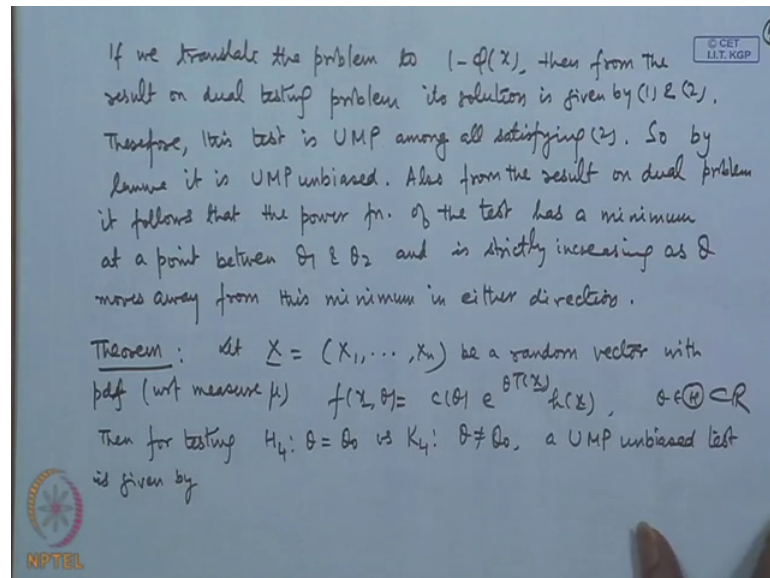 © CET
I.I.T. KGP
If we translate the problem to 1-φ(x), then from the
result on dual testing problem its solution is given by (1) & (2).
Therefore, this test is UMP among all satisfying (2). So by
lemma it is UMP unbiased. Also from the result on dual problem
it follows that the power fn. of the test has a minimum
at a point between θ1 & θ2 and is strictly increasing as θ
moves away from this minimum in either direction.
Theorem : Let X = (X1, ..., Xn) be a random vector with
pdf (wrt measure μ) f(x, θ) = c(θ) e^{θT(x)} h(x), θ ∈ Ⓗ ⊂ R
Then for testing H4: θ = θ0 vs K4: θ ≠ θ0, a UMP unbiased test
is given by
NPTEL